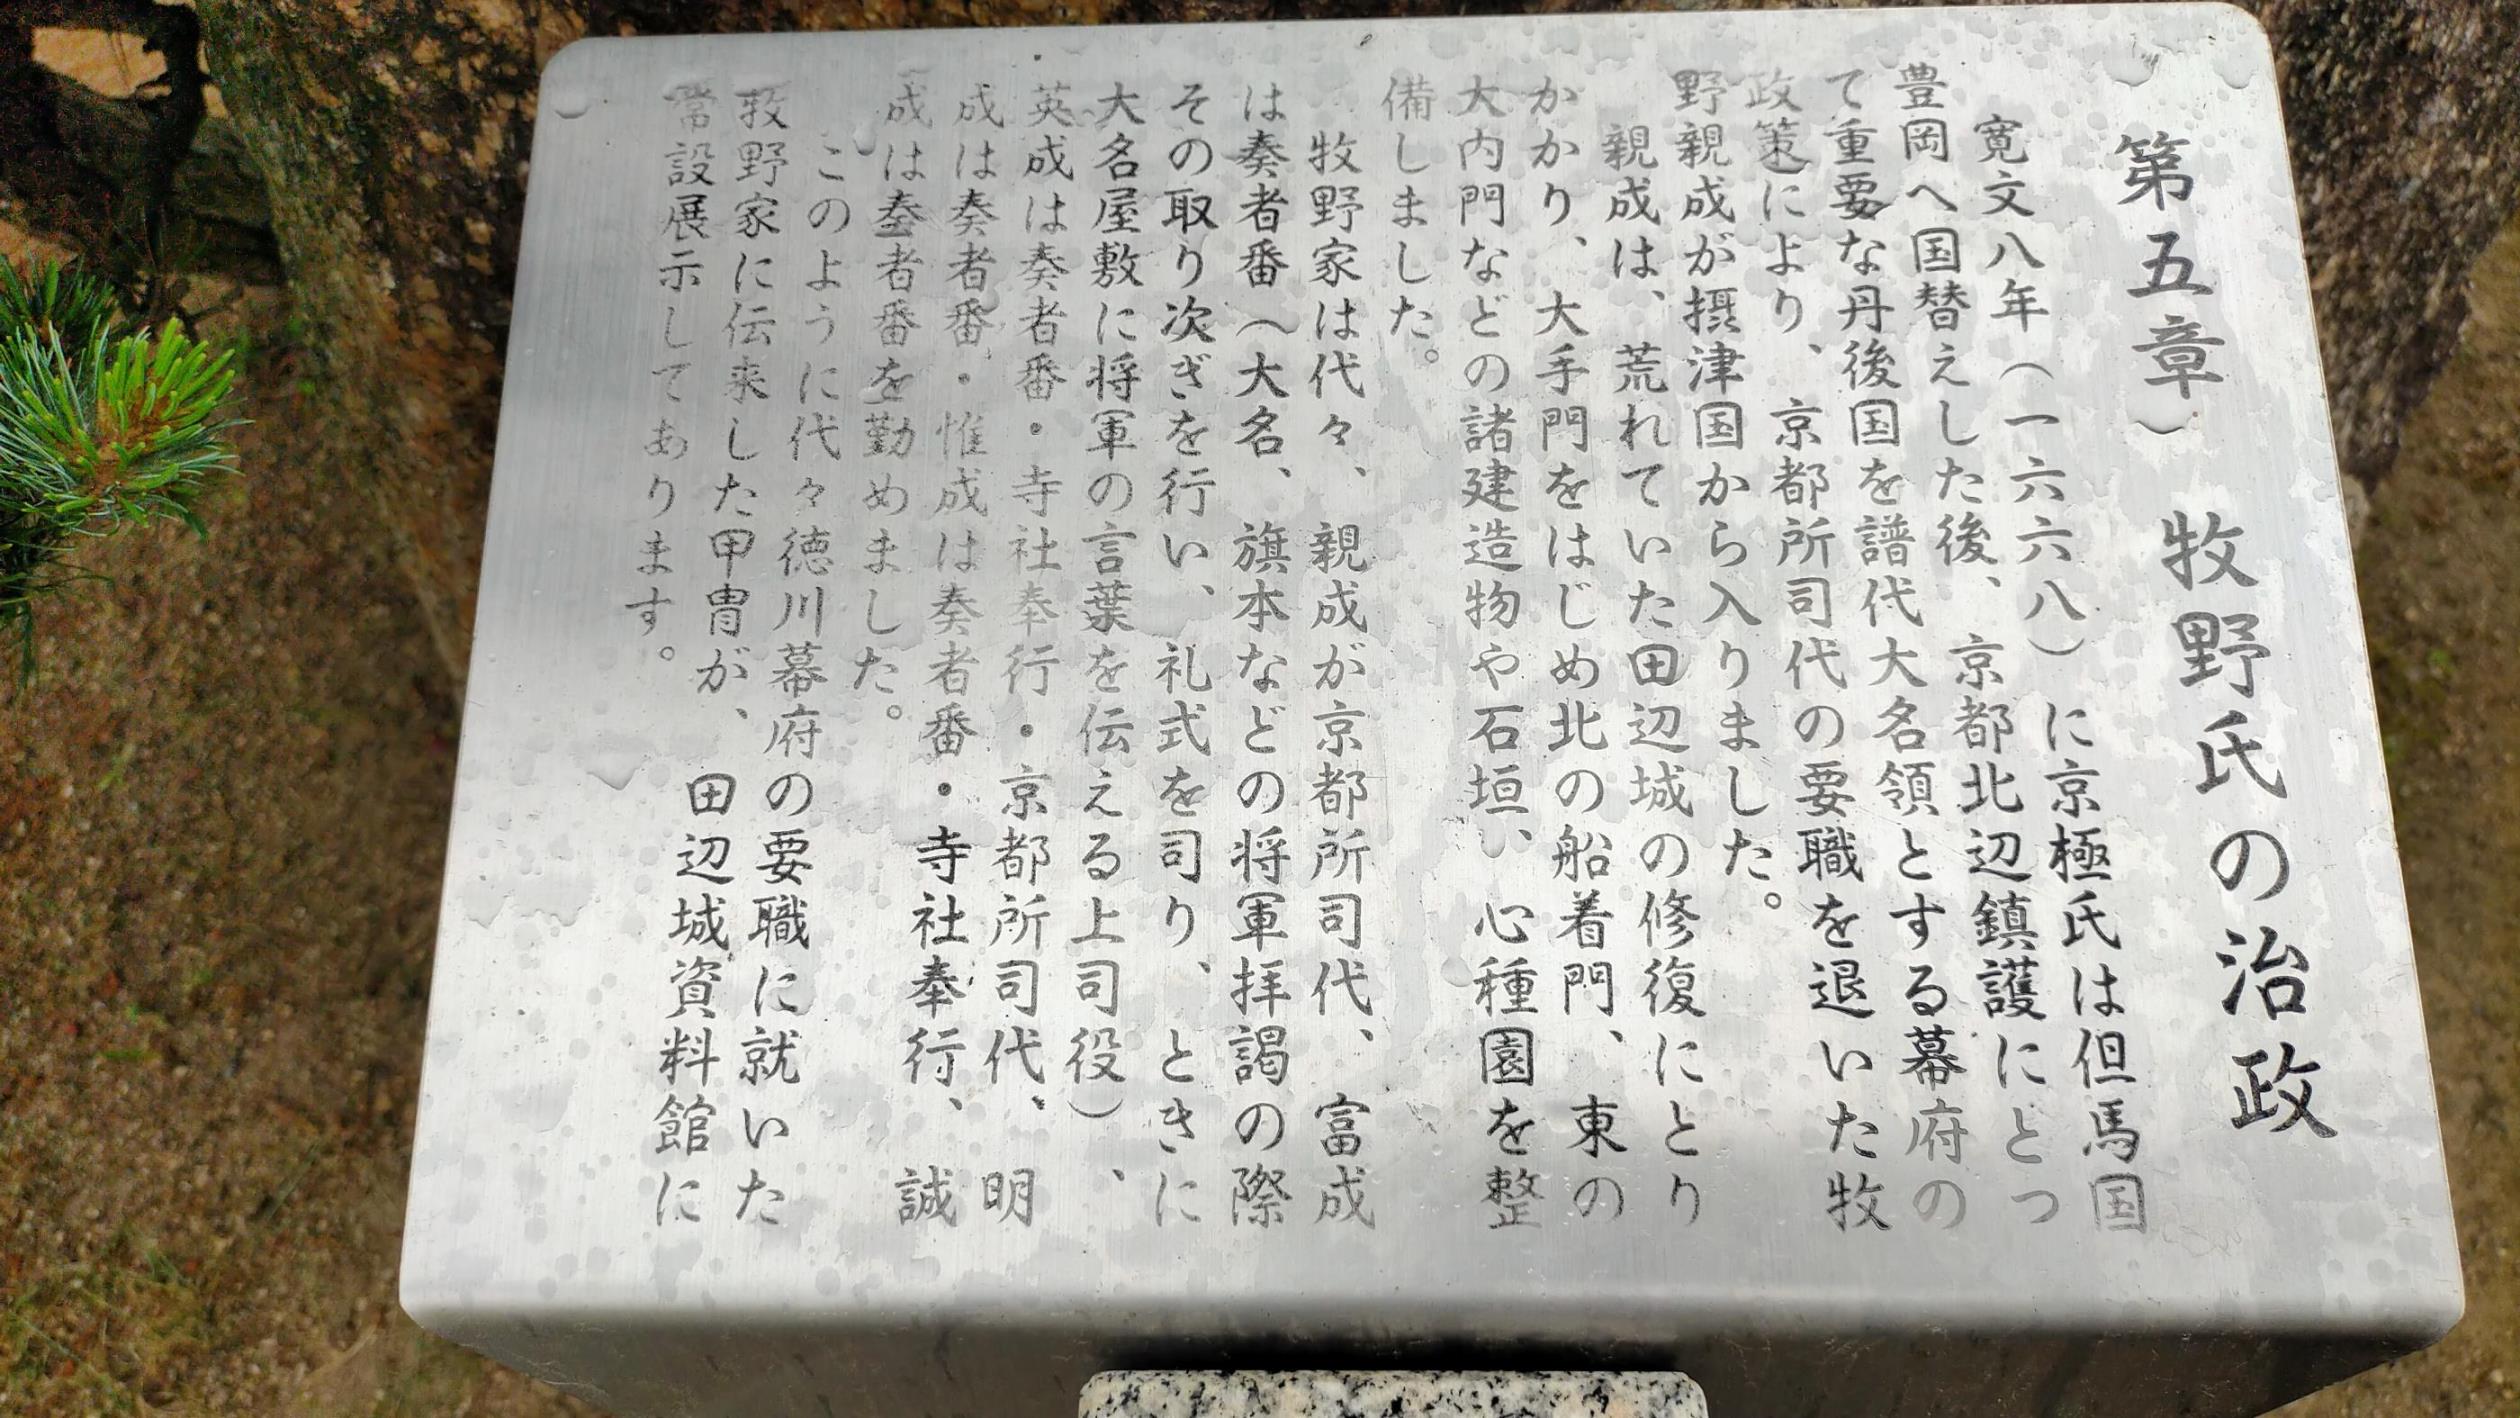 第五章 牧野氏の治政
寛文八年(一六六八)に京極氏は但馬国
豊岡へ国替えした後、京都北辺鎮護にとっ
て重要な丹後国を譜代大名領とする幕府の
政策により、京都所司代の要職を退いた牧
野親成が摂津国から入りました。
親成は、荒れていた田辺城の修復にとり
かかり、大手門をはじめ北の船着門、東の
大内門などの諸建造物や石垣、心種園を整
備しました。
牧野家は代々、親成が京都所司代、富成
は奏者番(大名、旗本などの将軍拝謁の際
その取り次ぎを行い、礼式を司り、ときに
大名屋敷に将軍の言葉を伝える上司役)、
英成は奏者番・寺社奉行・京都所司代、明
成は奏者番・惟成は奏者番・寺社奉行、誠
成は奏者番を勤めました。
このように代々徳川幕府の要職に就いた
牧野家に伝来した甲冑が、田辺城資料館に
常設展示してあります。